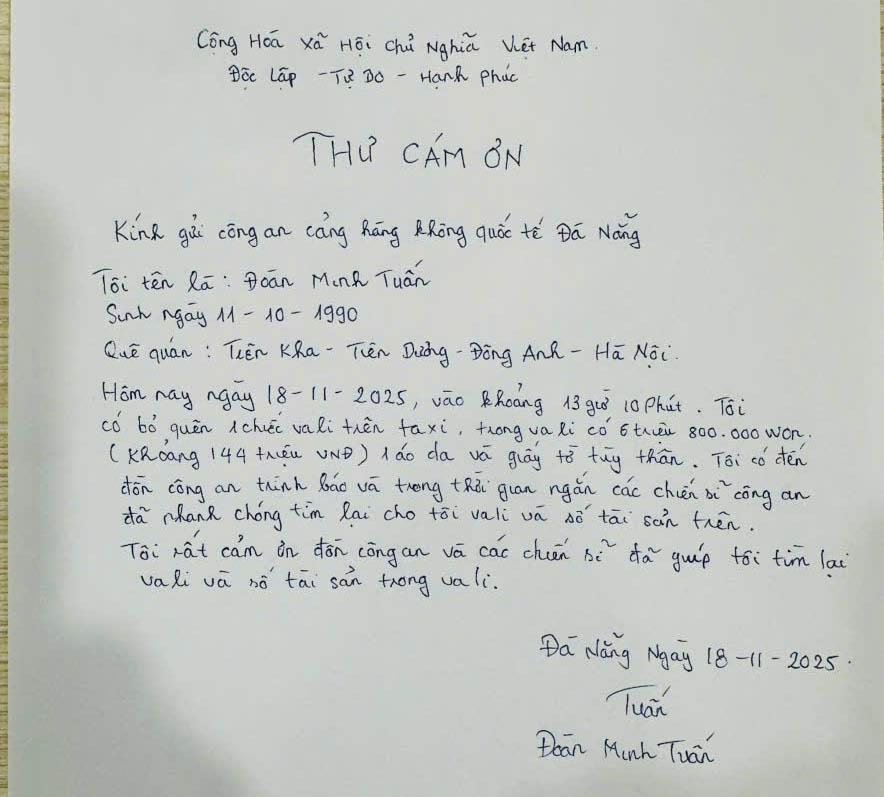 Cộng Hoà Xã Hội Chủ Nghĩa Việt Nam.
Độc Lập - Tự Do - Hạnh Phúc
THƯ CÁM ƠN
Kính gửi công an cảng hàng không quốc tế Đà Nẵng
Tôi tên là: Đoàn Minh Tuấn
Sinh ngày 11 - 10 - 1990
Quê quán: Tiên Kha - Tiên Dương - Đông Anh - Hà Nội.
Hôm nay ngày 18 - 11 - 2025, vào khoảng 13 giờ 10 Phút. Tôi
có bỏ quên 1 chiếc vali trên taxi, trong va li có 6 triệu 800.000 won.
(Khoảng 144 triệu VNĐ) 1 áo da và giấy tờ tùy thân. Tôi có đến
đồn công an trình báo và trong thời gian ngắn các chiến sĩ công an
đã nhanh chóng tìm lại cho tôi vali và số tài sản trên.
Tôi rất cảm ơn đồn công an và các chiến sĩ đã giúp tôi tìm lại
vali và số tài sản trong vali.
Đà Nẵng Ngày 18 - 11 - 2025.
Tuấn
Đoàn Minh Tuấn